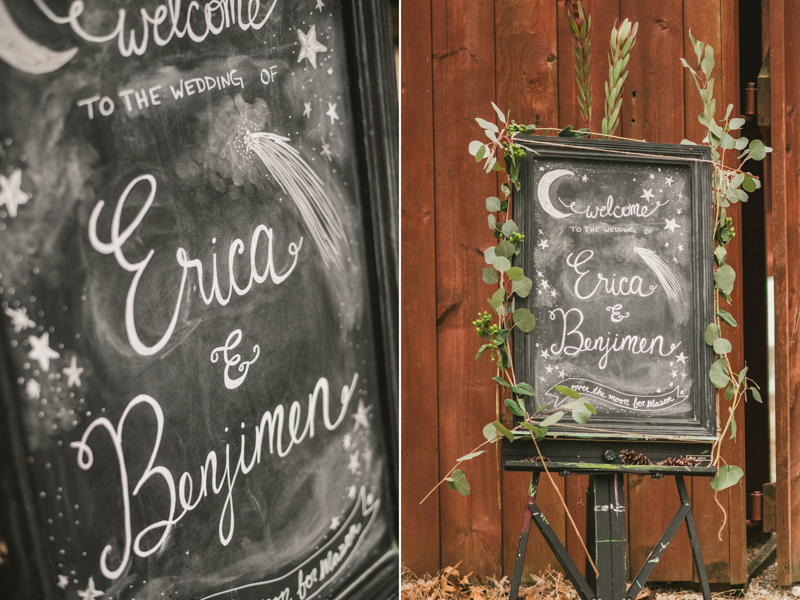 welcome
TO THE WEDDING OF
Erica
&
Benjimen
moon for Mason
welcome
TO THE WEDDING OF
Erica
&
Benjimen
over the moon for Mason